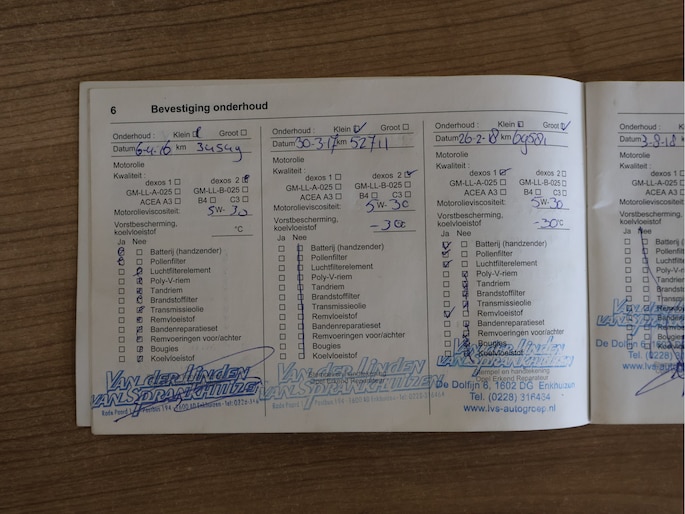 6 Bevestiging onderhoud
Onderhoud : Klein Groot
Datum 6-4-16 km 34549
Motorolie
Kwaliteit :
dexos 1 dexos 2
GM-LL-A-025 GM-LL-B-025
ACEA A3 B4 C3
Motorolieviscositeit: 5W-30
Vorstbescherming,
koelvloeistof °C
Ja Nee
Batterij (handzender)
Pollenfilter
Luchtfilterelement
Poly-V-riem
Tandriem
Brandstoffilter
Transmissieolie
Remvloeistof
Bandenreparatieset
Remvoeringen voor/achter
Bougies
Koelvloeistof
VAN DER LINDEN
VAN SPRANKHUIZEN
Onderhoud : Klein Groot
Datum 30-3-17 km 52711
Motorolie
Kwaliteit :
dexos 1 dexos 2
GM-LL-A-025 GM-LL-B-025
ACEA A3 B4 C3
Motorolieviscositeit: 5W-30
Vorstbescherming,
koelvloeistof -30°C
Ja Nee
Batterij (handzender)
Pollenfilter
Luchtfilterelement
Poly-V-riem
Tandriem
Brandstoffilter
Transmissieolie
Remvloeistof
Bandenreparatieset
Remvoeringen voor/achter
Bougies
Koelvloeistof
VAN DER LINDEN
VAN SPRANKHUIZEN
Onderhoud : Klein Groot
Datum 26-2-18 km
Motorolie
Kwaliteit :
dexos 1 dexos 2
GM-LL-A-025 GM-LL-B-025
ACEA A3 B4 C3
Motorolieviscositeit: 5W-30
Vorstbescherming,
koelvloeistof -30°C
Ja Nee
Batterij (handzender)
Pollenfilter
Luchtfilterelement
Poly-V-riem
Tandriem
Brandstoffilter
Transmissieolie
Remvloeistof
Bandenreparatieset
Remvoeringen voor/achter
Bougies
Koelvloeistof
VAN DER LINDEN
VAN SPRANKHUIZEN
Stempel en handtekening
Opel Erkend Reparateur
De Dolfijn 6, 1602 DG Enkhuizen
Tel. (0228) 316464
www.lvs-autogroep.nl
Onderhoud :
Datum 3-8-18
Motorolie
Kwaliteit :
GM-LL-A
ACEA
Motorolieviscosit
Vorstbescherming
koelvloeistof
Ja Nee
Batterij
Pollen
Luchtfi
Poly-V
Tandrie
Brandst
Transm
Remvloei
Bandenrep
Remvoer
Bougies
Koelvloei
De Dolfijn 6,
Tel. (0228)
www.lvs-